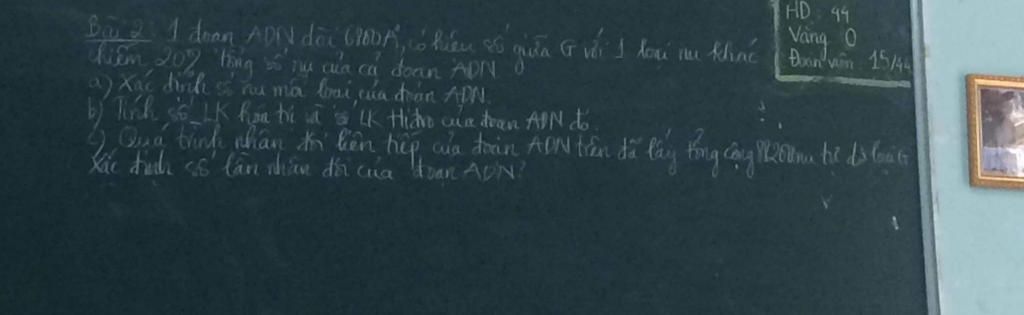 Bài 2: 1 đoạn ADN dài A⁰, có hiệu số giữa G với 1 loại nu khác
chiếm 20% tổng số nu của cả đoạn ADN
a) Xác định số nu mỗi loại của đoạn ADN.
b) Tính số LK hóa trị và số LK Hiđro của đoạn ADN đó.
c) Quá trình nhân đôi liên tiếp của đoạn ADN trên đã lấy tổng cộng nu tự do loại G
Xác định số lần nhân đôi của đoạn ADN?
HD: 44
Vắng 0
Đoàn viên 15/44